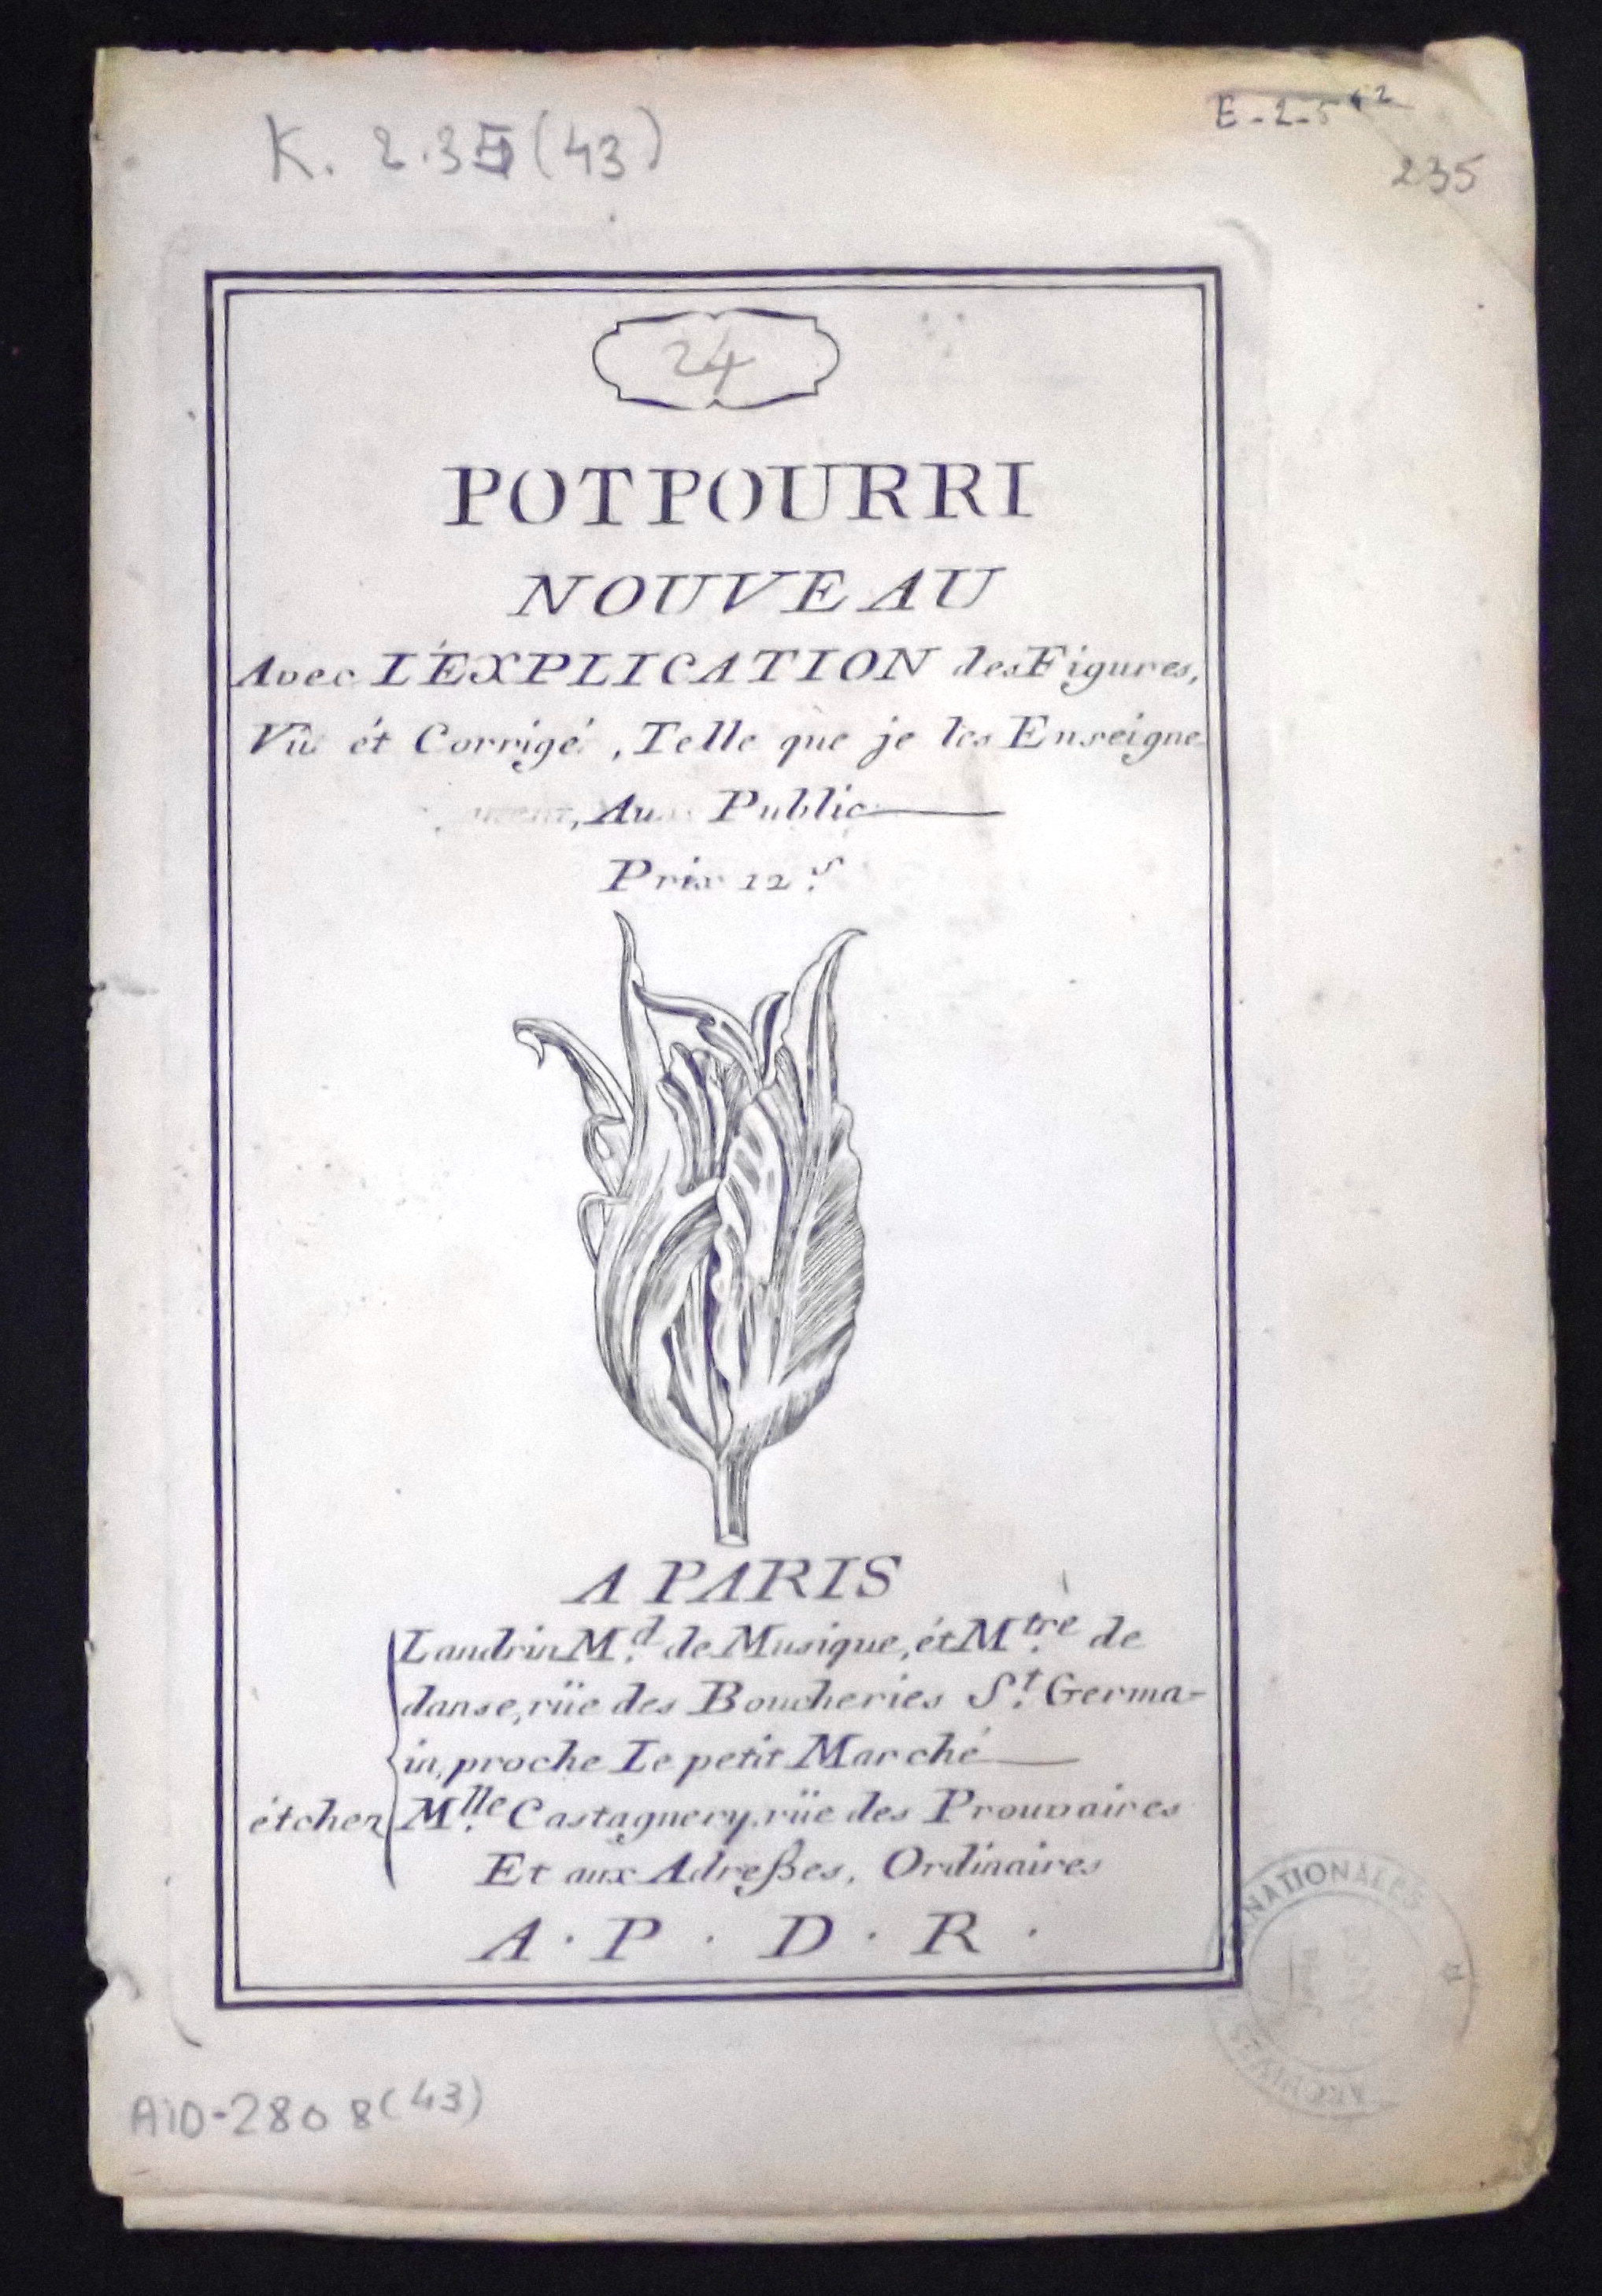 K. 2.35(43)
E-2-5 42
235
24
POTPOURRI
NOUVEAU
Avec L'EXPLICATION des Figures,
Vû ét Corrigé, Telle que je les Enseigne
Au Public
Prix 12 s
A PARIS
Landrin M.d de Musique, ét M.tre de
danse, rüe des Boucheries S.t Germa-
in, proche Le petit Marché
ét chez M.lle Castagnery, rüe des Prouvaires
Et aux Adreßes, Ordinaires
A · P · D · R ·
ARCHIVES NATIONALES
AID-280 8(43)